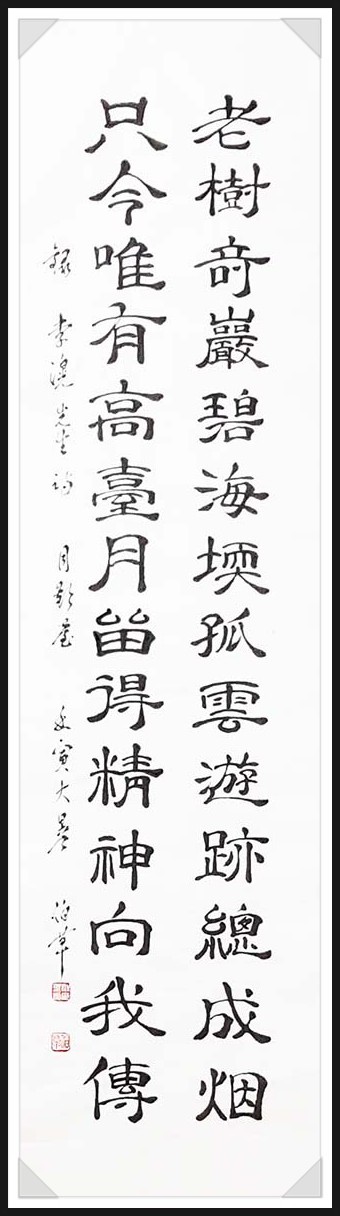 老樹竒巖碧海堧孤雲遊跡總成烟
只今唯有高臺月留得精神向我傳
錄 李滉先生詩 月影臺 寅大暑